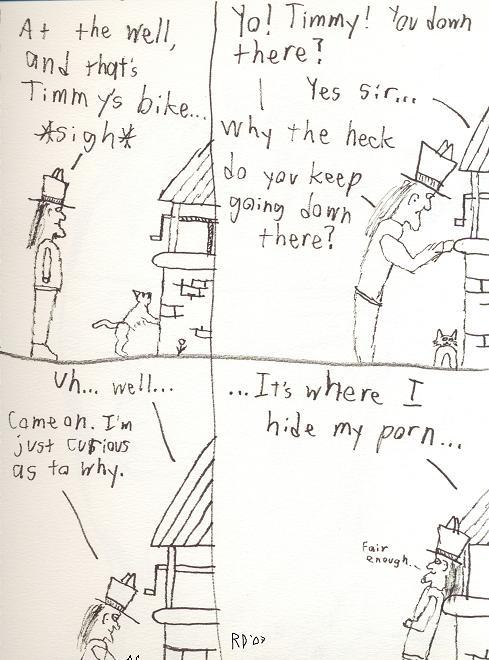 At the well,
and that's
Timmy's bike...
*sigh*
Yo! Timmy! You down
there?
Yes sir...
Why the heck
do you keep
going down
there?
Uh... well...
Come on. I'm
just curious
as to why.
...It's where I
hide my porn...
Fair
enough.
RD'07